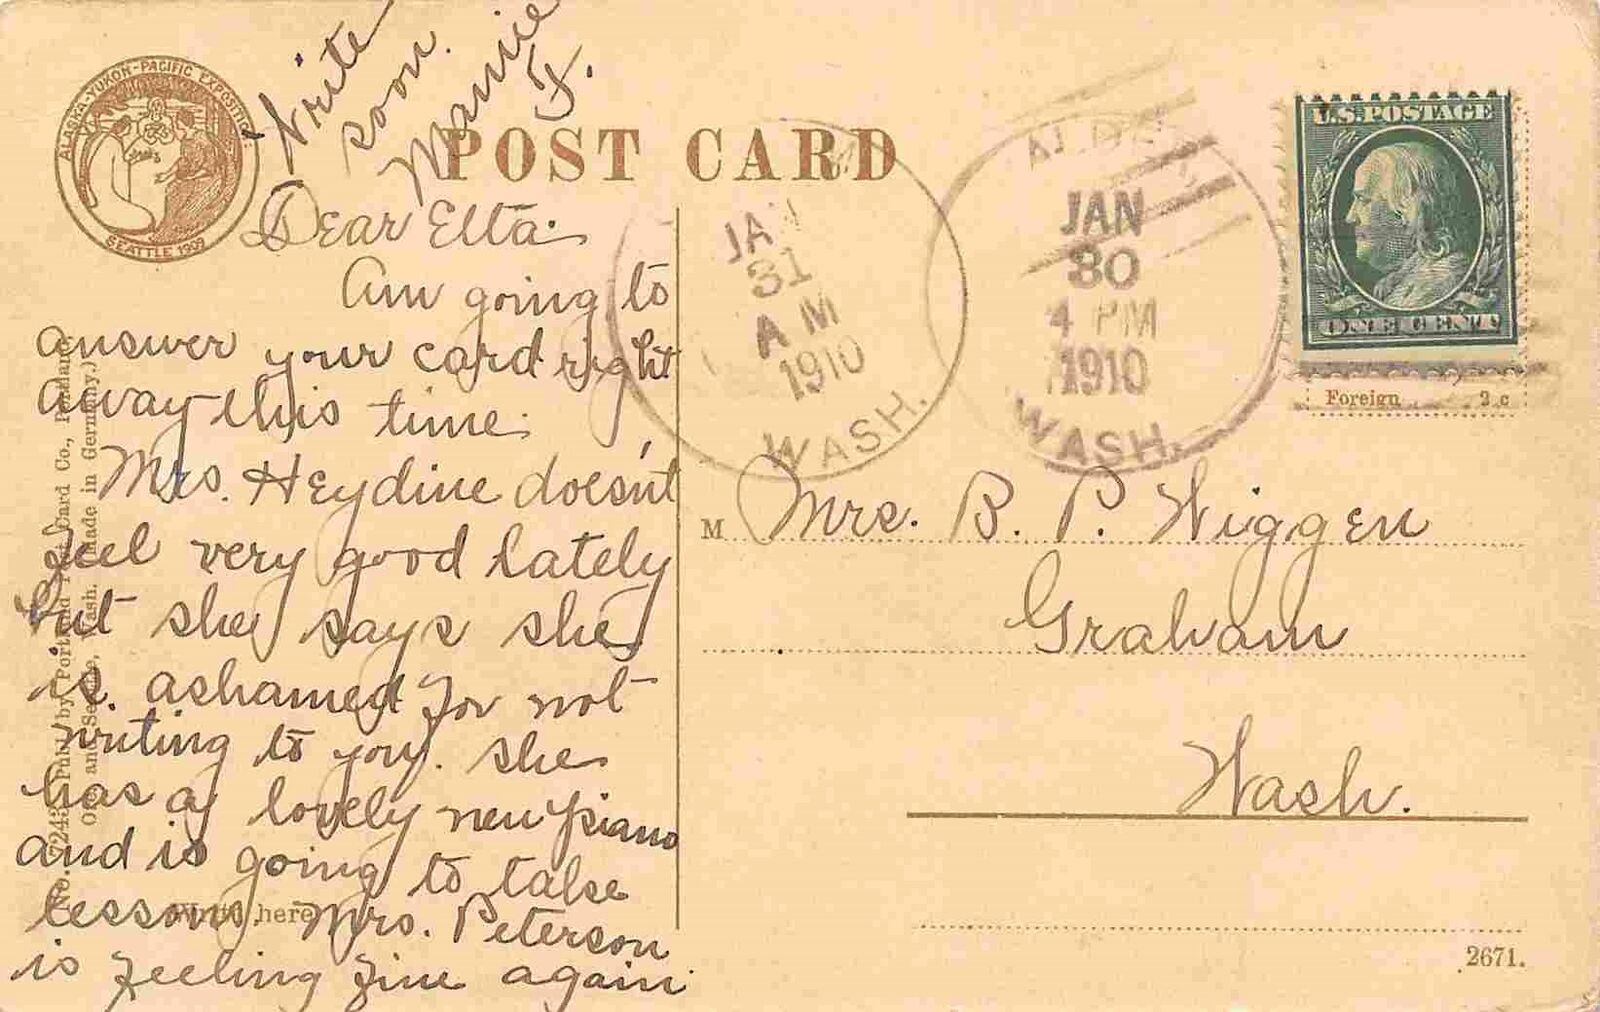 Write
soon.
Mamie
F.
ALASKA-YUKON-PACIFIC EXPOSITION
SEATTLE 1909
POST CARD
Dear Etta:
Am going to
answer your card right
away this time.
Mrs. Heydine doesn't
feel very good lately
but she says she
is ashamed for not
writing to you. She
has a lovely new piano
and is going to take
lessons. Mrs. Peterson
is feeling fine again.
Write here
No. 7243 Publ. by Portland Post Card Co., Portland,
Ore. and Seattle, Wash. (Made in Germany.)
JAN
31
AM
1910
WASH.
ALDER
JAN
30
4 PM
1910
WASH.
U.S. POSTAGE
ONE CENT
Foreign 2 c
M Mrs. B. P. Wiggen
Graham
Wash.
2671.